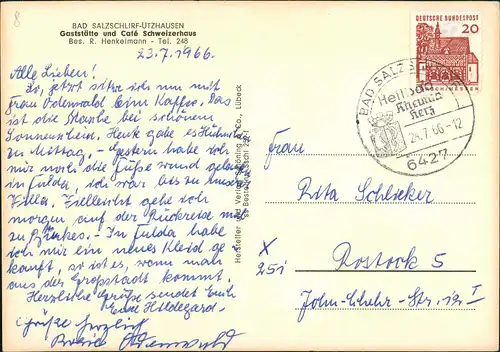 8
BAD SALZSCHLIRF-UTZHAUSEN
Gaststätte und Café Schweizerhaus
Bes. R. Henkelmann - Tel. 248
23.7.1966.
Alle Lieben!
So, jetzt sitze ich nun mit
Frau Odenwald beim Kaffee. Das
ist die Stanbe bei schönem
Sonnenschein. Heute gabe es Hühnchen
zu Mittag. - Gestern habe ich
mir mohl die Füße wund gelaufen
in Fulda, ich war bis zu unserer
Villa. Vielleicht gehe ich
morgen auf der Rückreise mit
zu - In Fulda habe
ich mir ein neues Kleid ge
kauft, so ist es, wenn man
aus der Großstadt kommt.
Herzliche Grüße sendet Euch
Eure Hildegard.
Grüße herzlich
Odenwald
Hersteller und Verlag Schöning & Co., Lübeck
DEUTSCHE BUNDESPOST
20
BAD SALZSCHLIRF
Heilbad
Rheuma
Herz
24.7.66-12
6427
Frau
Rita Schlieker
x
25i
Rostock 5
John-Schehr-Str. 12 I